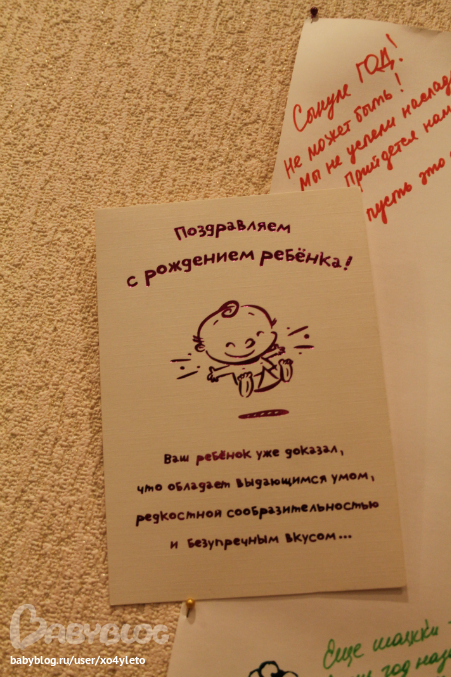 Сынуле ГОД!
не может быть!
мы не успели
Прийдется нам
пусть это
Поздравляем
с рождением ребёнка!
Ваш ребёнок уже доказал,
что обладает выдающимся умом,
редкостной сообразительностью
и безупречным вкусом...
Еще
год
BABYBLOG
babyblog.ru/user/xo4yleto